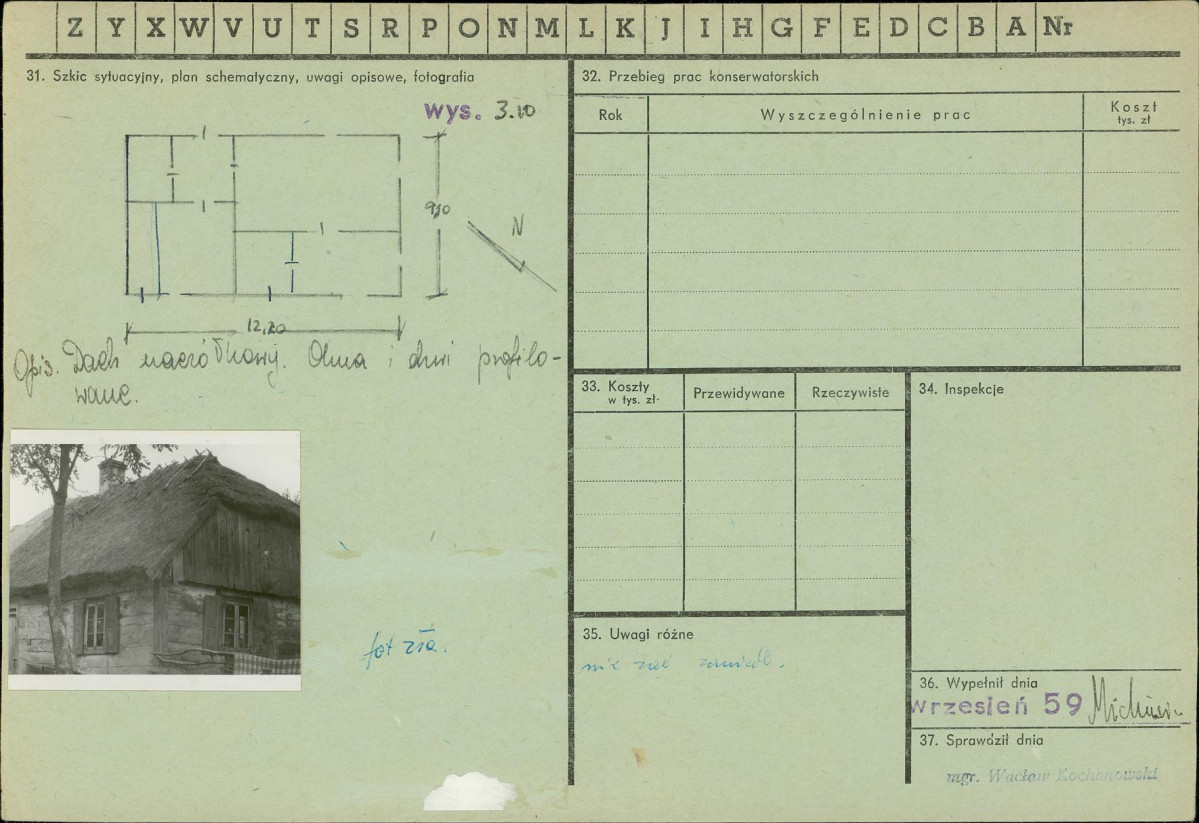 Z Y X W V U T S R P O N M L K J I H G F E D C B A Nr
31. Szkic sytuacyjny, plan schematyczny, uwagi opisowe, fotografia
wys. 3.10
9,10
N
12,20
Opis. Dach naczółkowy. Okna i drzwi profilo-
wane.
fot zła.
32. Przebieg prac konserwatorskich
Rok
Wyszczególnienie prac
Koszt
tys. zł
33. Koszty
w tys. zł.
Przewidywane
Rzeczywiste
34. Inspekcje
35. Uwagi różne
36. Wypełnił dnia
wrzesień 59
37. Sprawdził dnia
mgr. Wacław Kochanowski